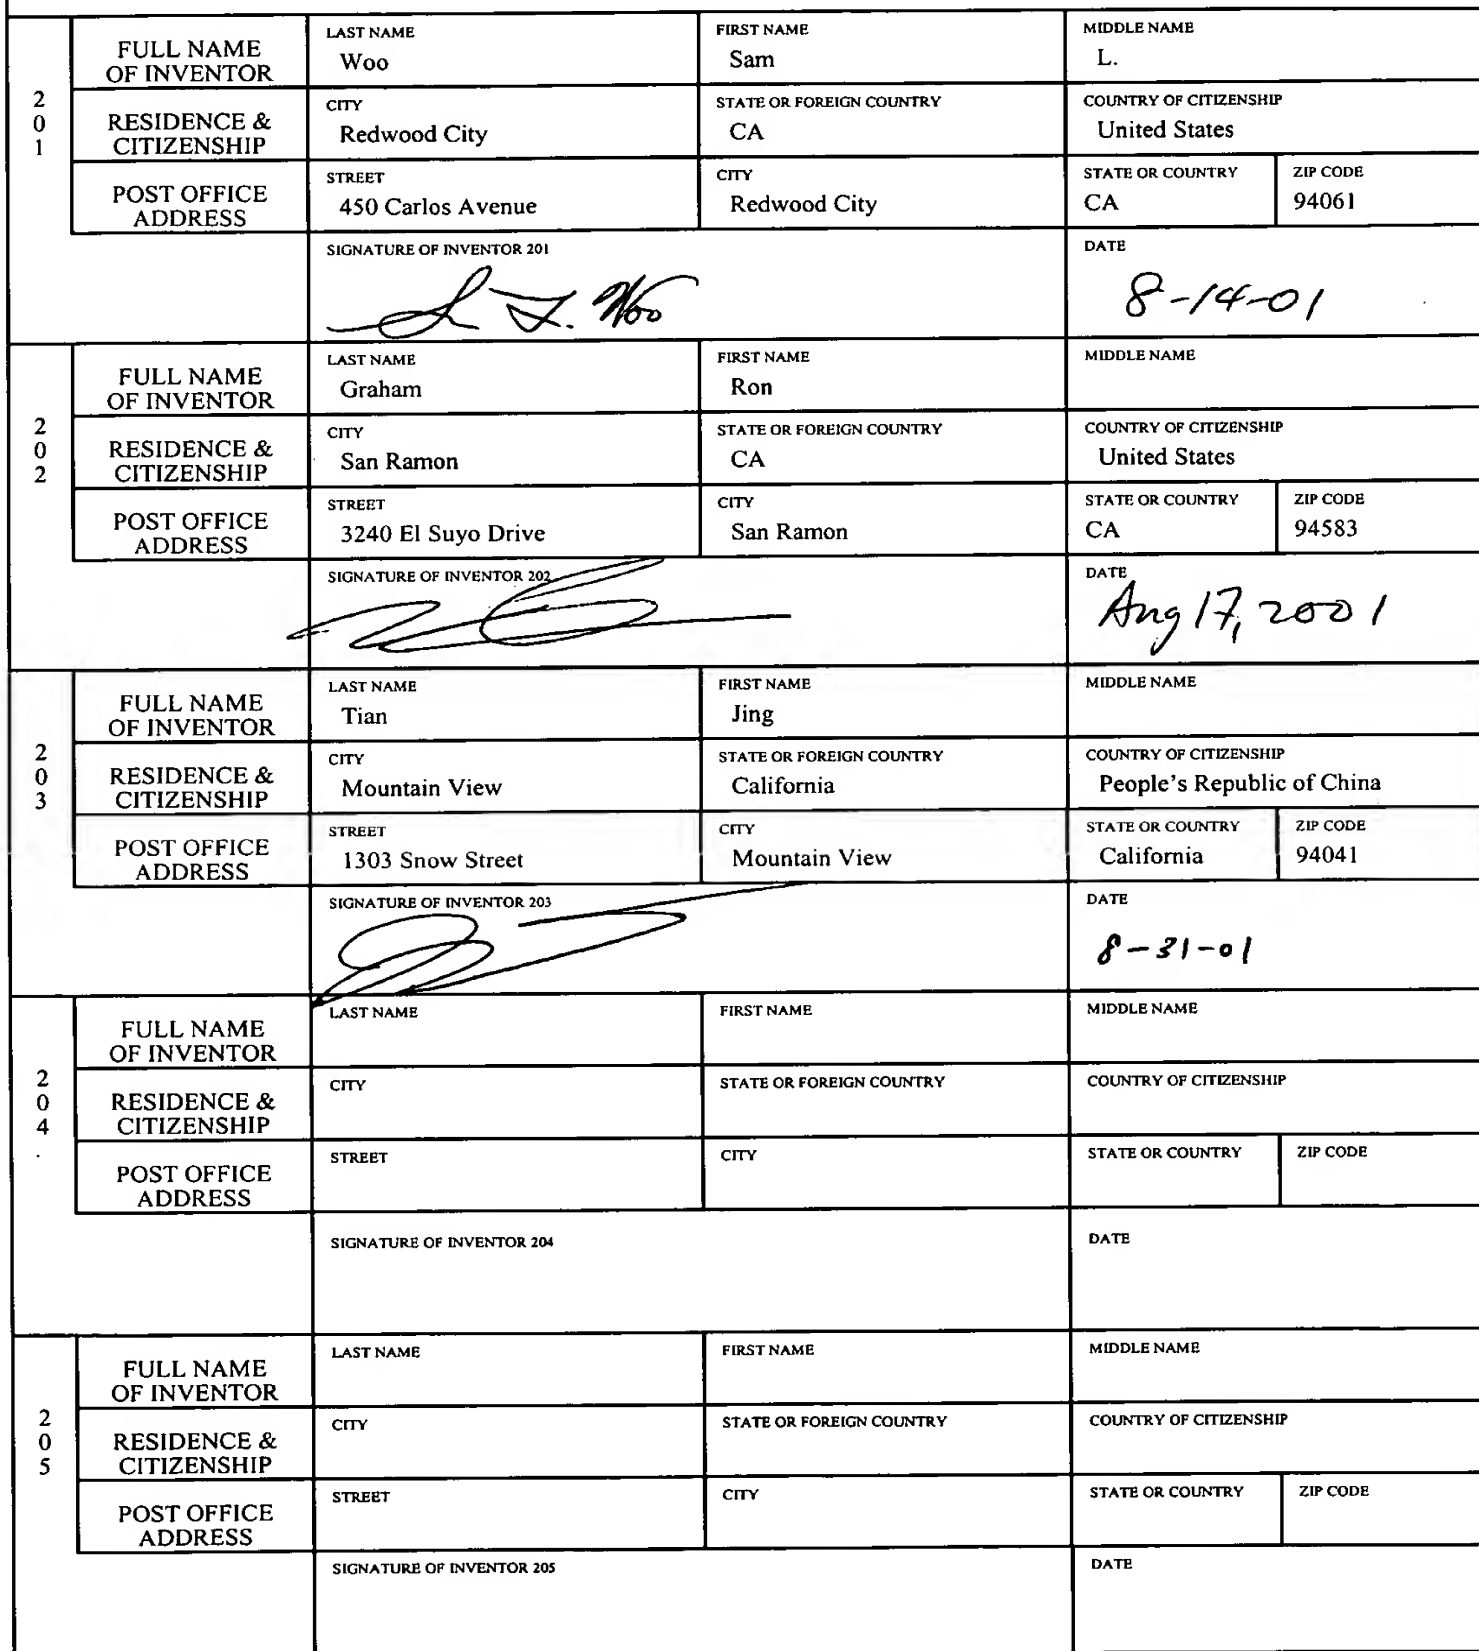 201
FULL NAME OF INVENTOR
LAST NAME
Woo
FIRST NAME
Sam
MIDDLE NAME
L.
RESIDENCE & CITIZENSHIP
CITY
Redwood City
STATE OR FOREIGN COUNTRY
CA
COUNTRY OF CITIZENSHIP
United States
POST OFFICE ADDRESS
STREET
450 Carlos Avenue
CITY
Redwood City
STATE OR COUNTRY
CA
ZIP CODE
94061
SIGNATURE OF INVENTOR 201
S L. Woo
DATE
8-14-01
202
FULL NAME OF INVENTOR
LAST NAME
Graham
FIRST NAME
Ron
MIDDLE NAME
RESIDENCE & CITIZENSHIP
CITY
San Ramon
STATE OR FOREIGN COUNTRY
CA
COUNTRY OF CITIZENSHIP
United States
POST OFFICE ADDRESS
STREET
3240 El Suyo Drive
CITY
San Ramon
STATE OR COUNTRY
CA
ZIP CODE
94583
SIGNATURE OF INVENTOR 202
DATE
Aug 17, 2001
203
FULL NAME OF INVENTOR
LAST NAME
Tian
FIRST NAME
Jing
MIDDLE NAME
RESIDENCE & CITIZENSHIP
CITY
Mountain View
STATE OR FOREIGN COUNTRY
California
COUNTRY OF CITIZENSHIP
People's Republic of China
POST OFFICE ADDRESS
STREET
1303 Snow Street
CITY
Mountain View
STATE OR COUNTRY
California
ZIP CODE
94041
SIGNATURE OF INVENTOR 203
DATE
8-31-01
204
FULL NAME OF INVENTOR
LAST NAME
FIRST NAME
MIDDLE NAME
RESIDENCE & CITIZENSHIP
CITY
STATE OR FOREIGN COUNTRY
COUNTRY OF CITIZENSHIP
POST OFFICE ADDRESS
STREET
CITY
STATE OR COUNTRY
ZIP CODE
SIGNATURE OF INVENTOR 204
DATE
205
FULL NAME OF INVENTOR
LAST NAME
FIRST NAME
MIDDLE NAME
RESIDENCE & CITIZENSHIP
CITY
STATE OR FOREIGN COUNTRY
COUNTRY OF CITIZENSHIP
POST OFFICE ADDRESS
STREET
CITY
STATE OR COUNTRY
ZIP CODE
SIGNATURE OF INVENTOR 205
DATE